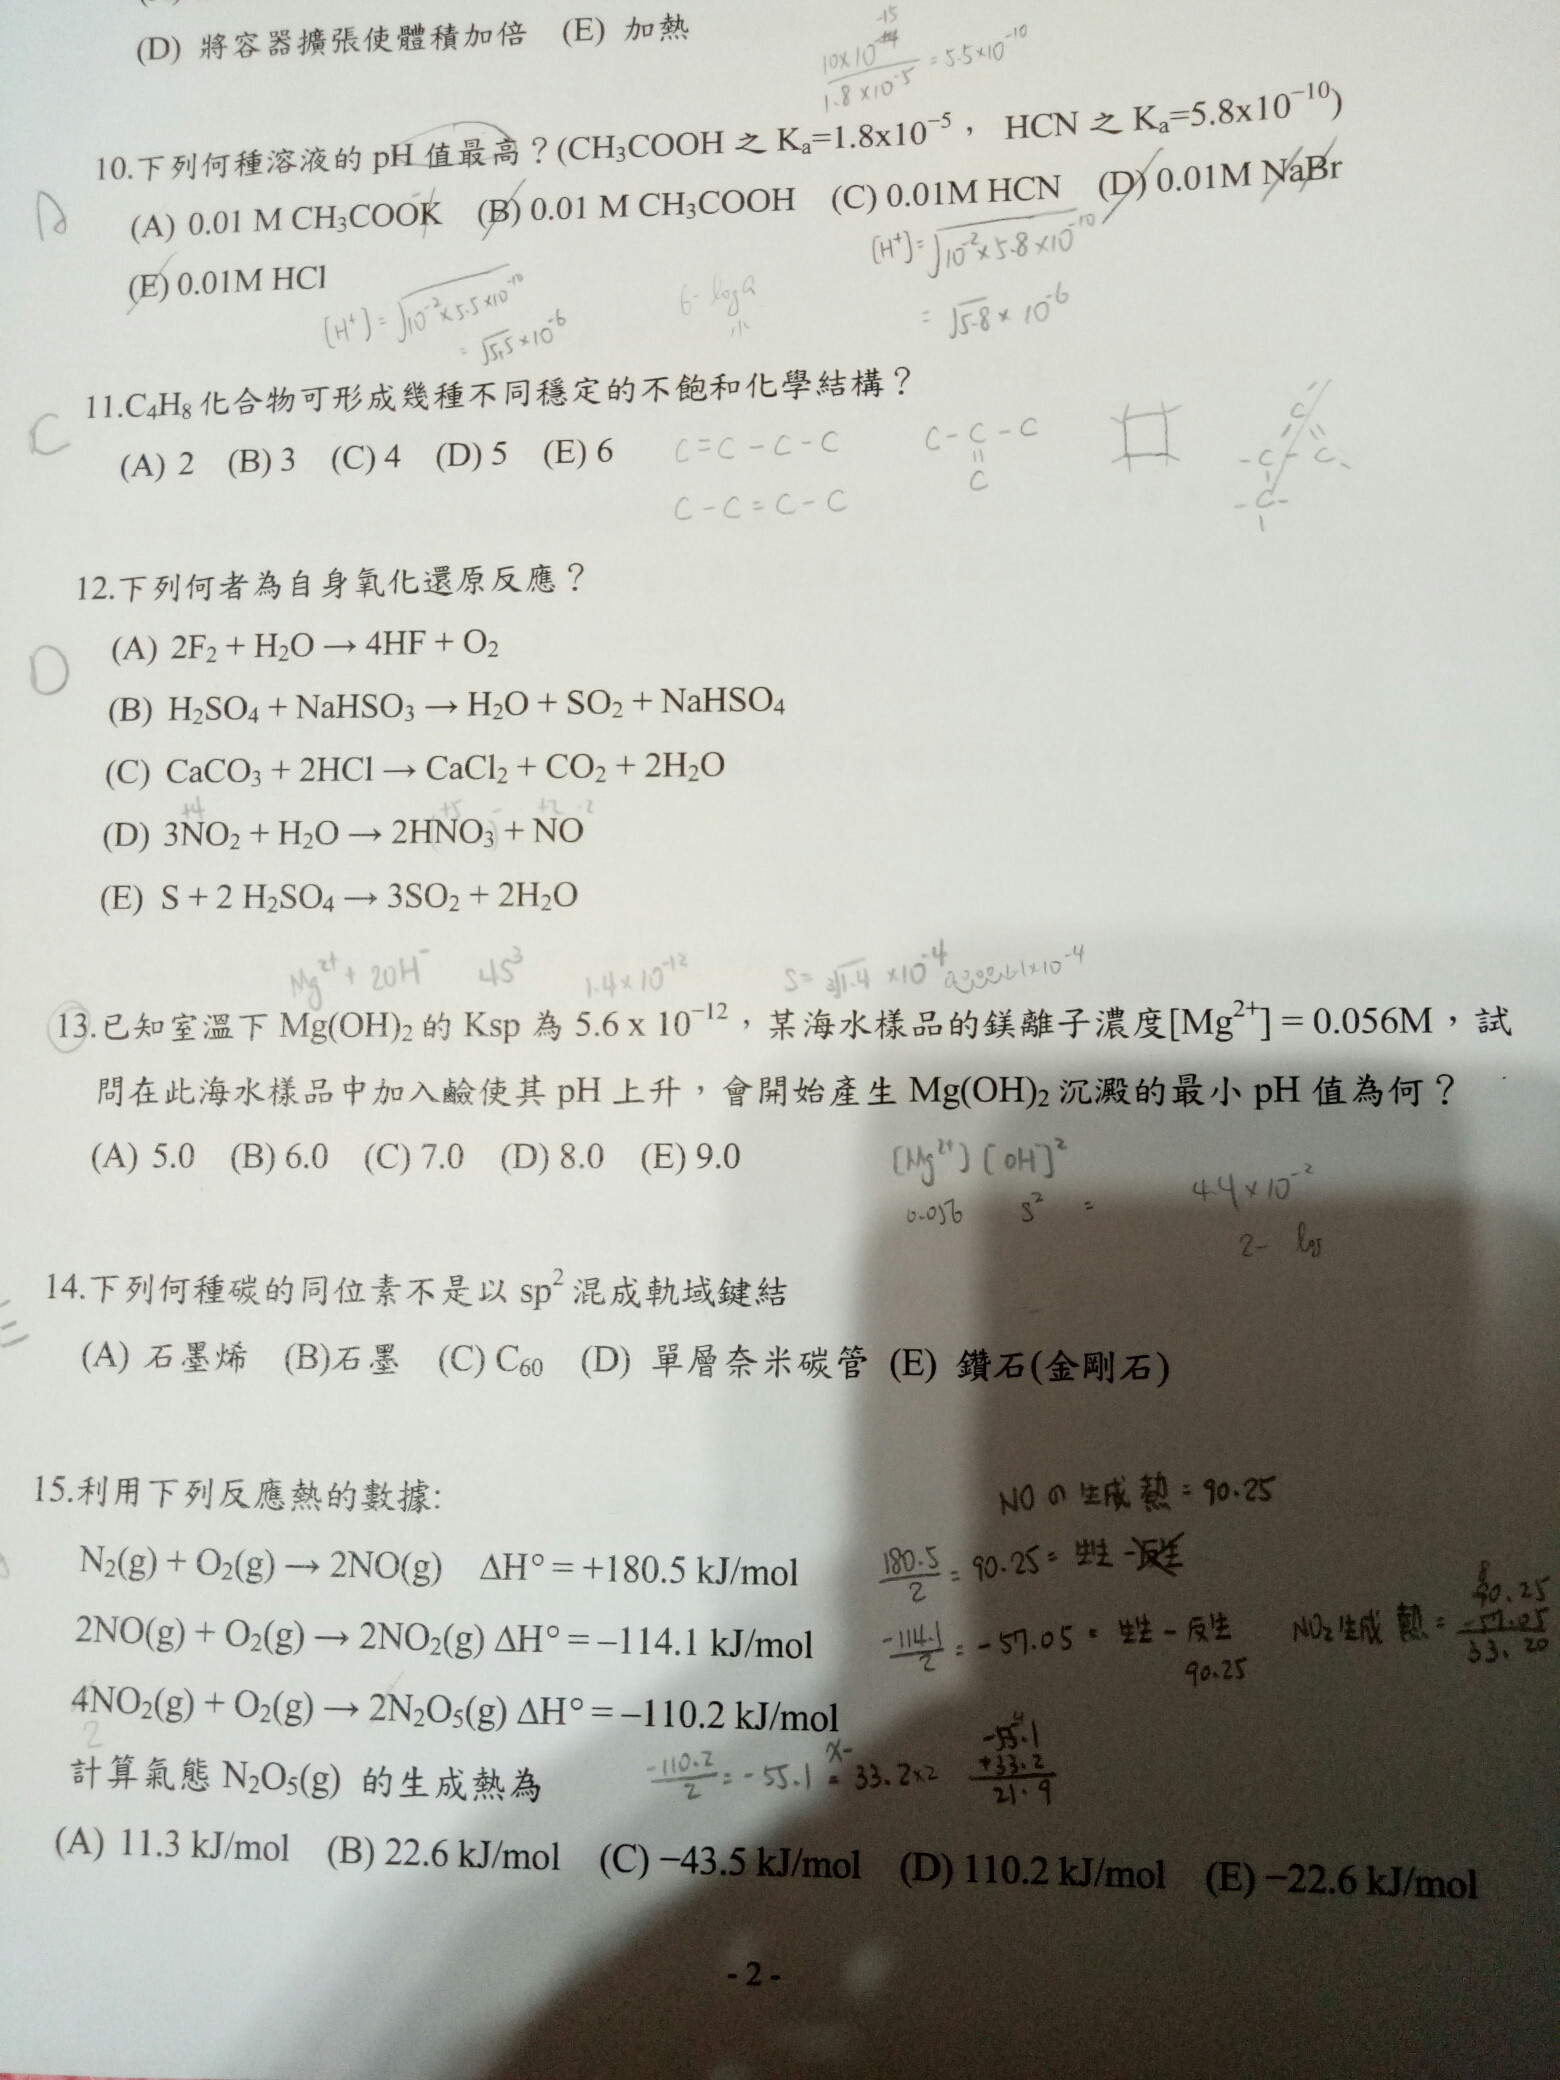 (D) 將容器擴張使體積加倍 (E) 加熱
10x10⁻¹⁵
1.8x10⁻⁵
=5.5x10⁻¹⁰
10.下列何種溶液的 pH 值最高？(CH₃COOH 之 Kₐ=1.8x10⁻⁵， HCN 之 Kₐ=5.8x10⁻¹⁰)
(A) 0.01 M CH₃COOK (B) 0.01 M CH₃COOH (C) 0.01M HCN (D) 0.01M NaBr
(E) 0.01M HCl
[H⁺]=√10⁻²x5.8x10⁻¹⁰
=√5.8x10⁻⁶
[H⁺]=√10⁻²x5.5x10⁻¹⁰
=√5.5x10⁻⁶
6-log a
C
11.C₄H₈ 化合物可形成幾種不同穩定的不飽和化學結構？
(A) 2 (B) 3 (C) 4 (D) 5 (E) 6
C=C-C-C
C-C=C-C
C-C-C
C
12.下列何者為自身氧化還原反應？
D
(A) 2F₂ + H₂O → 4HF + O₂
(B) H₂SO₄ + NaHSO₃ → H₂O + SO₂ + NaHSO₄
(C) CaCO₃ + 2HCl → CaCl₂ + CO₂ + 2H₂O
+4 +5 +2 -2
(D) 3NO₂ + H₂O → 2HNO₃ + NO
(E) S + 2 H₂SO₄ → 3SO₂ + 2H₂O
Mg²⁺+2OH⁻ 4S³ 1.4x10⁻¹² S=³√1.4x10⁻⁴
13.已知室溫下 Mg(OH)₂ 的 Ksp 為 5.6 x 10⁻¹²，某海水樣品的鎂離子濃度[Mg²⁺] = 0.056M，試
問在此海水樣品中加入鹼使其 pH 上升，會開始產生 Mg(OH)₂ 沉澱的最小 pH 值為何？
(A) 5.0 (B) 6.0 (C) 7.0 (D) 8.0 (E) 9.0
[Mg²⁺][OH]²
0.056 S² = 4.4x10⁻²
2- log
14.下列何種碳的同位素不是以 sp² 混成軌域鍵結
(A) 石墨烯 (B)石墨 (C) C₆₀ (D) 單層奈米碳管 (E) 鑽石(金剛石)
15.利用下列反應熱的數據:
NO の生成熱=90.25
N₂(g) + O₂(g) → 2NO(g) ΔH° = +180.5 kJ/mol
180.5
2
=90.25=生生-反生
2NO(g) + O₂(g) → 2NO₂(g) ΔH° = –114.1 kJ/mol
-114.1
2
=-57.05=生生-反生
90.25
NO₂生成熱=
90.25
-57.05
33.20
4NO₂(g) + O₂(g) → 2N₂O₅(g) ΔH° = –110.2 kJ/mol
2
計算氣態 N₂O₅(g) 的生成熱為
-110.2
2
=-55.1=x-33.2x2
-55.1
+33.2
21.9
(A) 11.3 kJ/mol (B) 22.6 kJ/mol (C) −43.5 kJ/mol (D) 110.2 kJ/mol (E) −22.6 kJ/mol
- 2 -